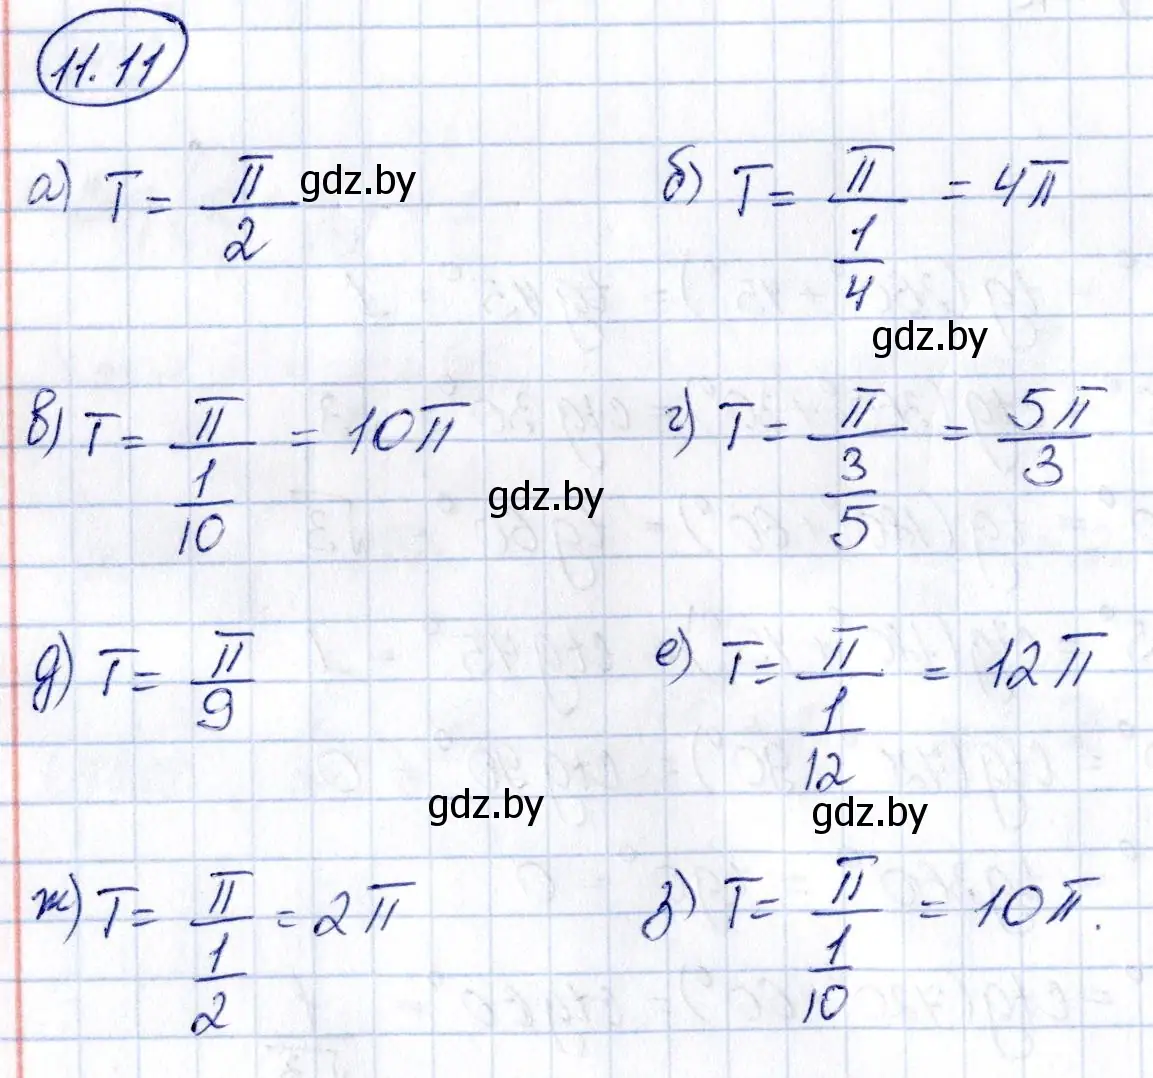 11.11
а) T = π/2 gdz.by б) T = π/(1/4) = 4π
gdz.by
в) T = π/(1/10) = 10π г) T = π/(3/5) = 5π/3
gdz.by
д) T = π/9 е) T = π/(1/12) = 12π
gdz.by gdz.by
ж) T = π/(1/2) = 2π з) T = π/(1/10) = 10π.